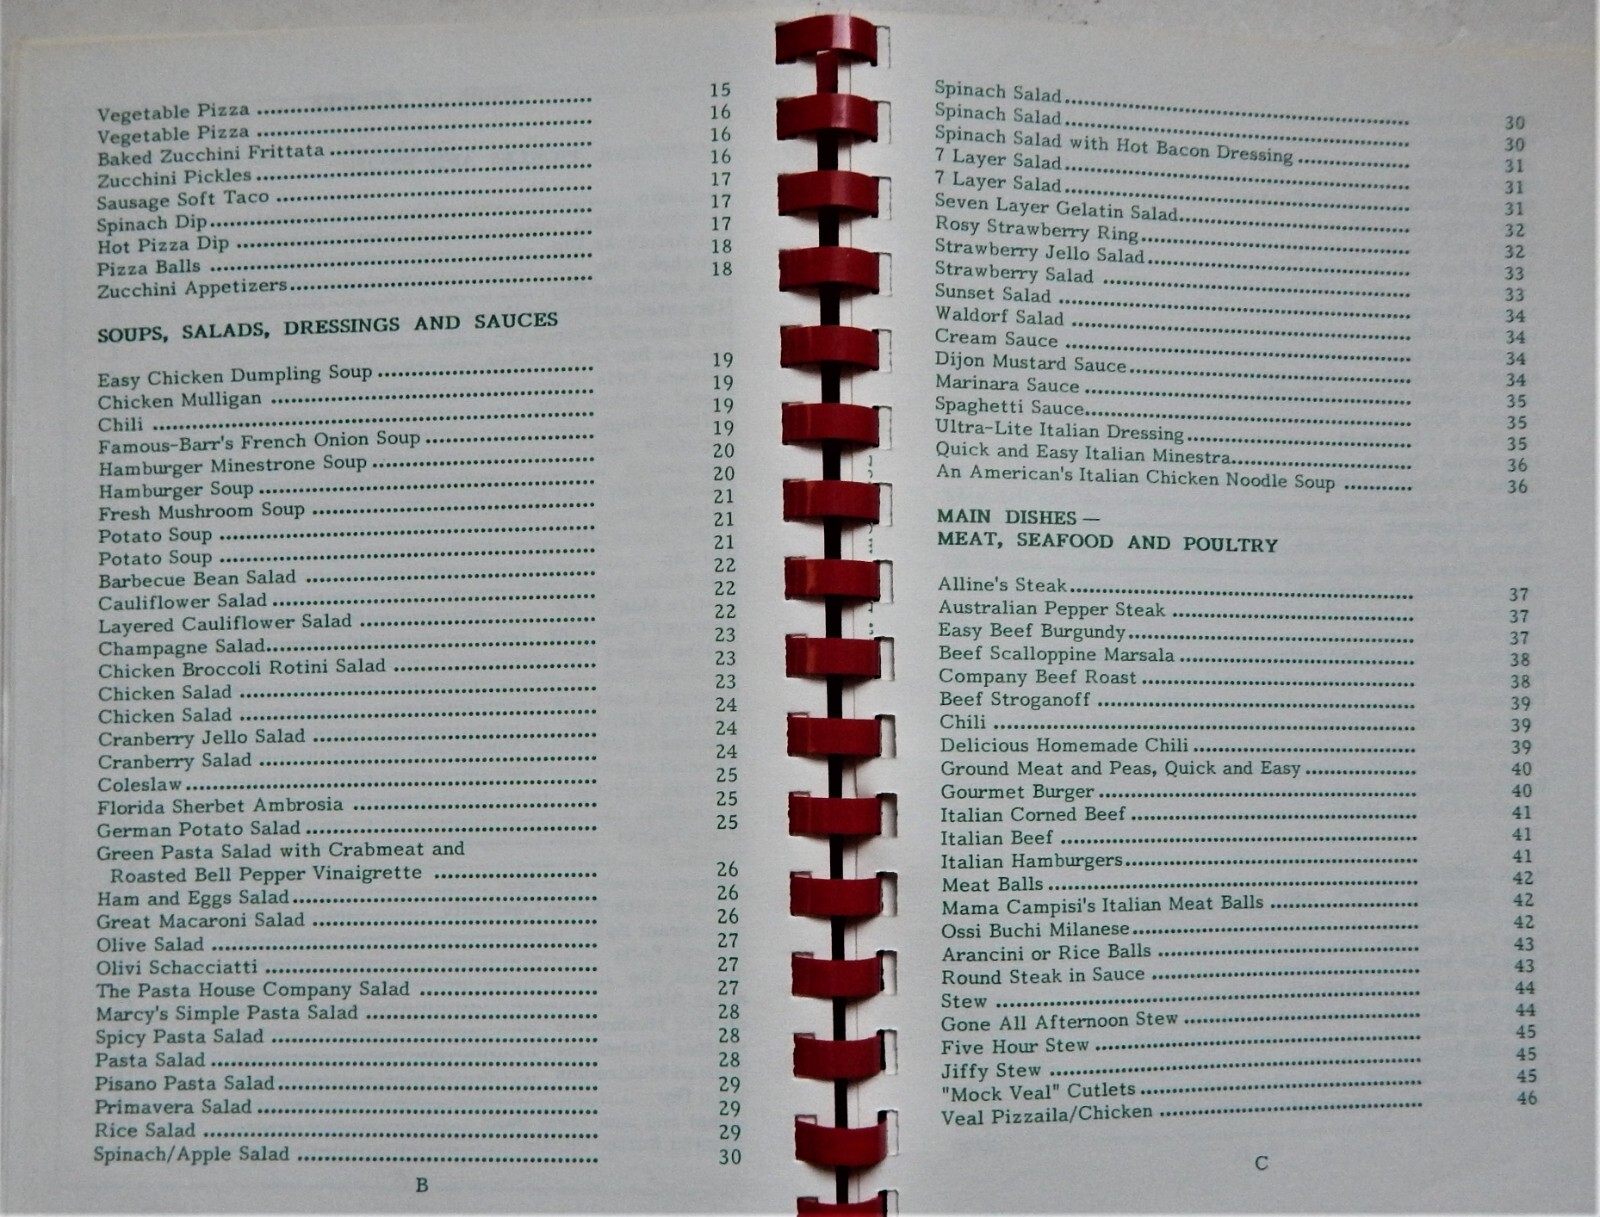 Vegetable Pizza ........ 15
Vegetable Pizza ........ 16
Baked Zucchini Frittata ........ 16
Zucchini Pickles ........ 16
Sausage Soft Taco ........ 17
Spinach Dip ........ 17
Hot Pizza Dip ........ 17
Pizza Balls ........ 18
Zucchini Appetizers ........ 18
SOUPS, SALADS, DRESSINGS AND SAUCES
Easy Chicken Dumpling Soup ........ 19
Chicken Mulligan ........ 19
Chili ........ 19
Famous-Barr's French Onion Soup ........ 19
Hamburger Minestrone Soup ........ 20
Hamburger Soup ........ 20
Fresh Mushroom Soup ........ 21
Potato Soup ........ 21
Potato Soup ........ 21
Barbecue Bean Salad ........ 22
Cauliflower Salad ........ 22
Layered Cauliflower Salad ........ 22
Champagne Salad ........ 23
Chicken Broccoli Rotini Salad ........ 23
Chicken Salad ........ 23
Chicken Salad ........ 24
Cranberry Jello Salad ........ 24
Cranberry Salad ........ 24
Coleslaw ........ 25
Florida Sherbet Ambrosia ........ 25
German Potato Salad ........ 25
Green Pasta Salad with Crabmeat and
Roasted Bell Pepper Vinaigrette ........ 26
Ham and Eggs Salad ........ 26
Great Macaroni Salad ........ 26
Olive Salad ........ 27
Olivi Schacciatti ........ 27
The Pasta House Company Salad ........ 27
Marcy's Simple Pasta Salad ........ 28
Spicy Pasta Salad ........ 28
Pasta Salad ........ 28
Pisano Pasta Salad ........ 29
Primavera Salad ........ 29
Rice Salad ........ 29
Spinach/Apple Salad ........ 30
B
Spinach Salad ........ 30
Spinach Salad ........ 30
Spinach Salad with Hot Bacon Dressing ........ 31
7 Layer Salad ........ 31
7 Layer Salad ........ 31
Seven Layer Gelatin Salad ........ 32
Rosy Strawberry Ring ........ 32
Strawberry Jello Salad ........ 33
Strawberry Salad ........ 33
Sunset Salad ........ 34
Waldorf Salad ........ 34
Cream Sauce ........ 34
Dijon Mustard Sauce ........ 34
Marinara Sauce ........ 35
Spaghetti Sauce ........ 35
Ultra-Lite Italian Dressing ........ 35
Quick and Easy Italian Minestra ........ 36
An American's Italian Chicken Noodle Soup ........ 36
MAIN DISHES —
MEAT, SEAFOOD AND POULTRY
Alline's Steak ........ 37
Australian Pepper Steak ........ 37
Easy Beef Burgundy ........ 37
Beef Scalloppine Marsala ........ 38
Company Beef Roast ........ 38
Beef Stroganoff ........ 39
Chili ........ 39
Delicious Homemade Chili ........ 39
Ground Meat and Peas, Quick and Easy ........ 40
Gourmet Burger ........ 40
Italian Corned Beef ........ 41
Italian Beef ........ 41
Italian Hamburgers ........ 41
Meat Balls ........ 42
Mama Campisi's Italian Meat Balls ........ 42
Ossi Buchi Milanese ........ 42
Arancini or Rice Balls ........ 43
Round Steak in Sauce ........ 43
Stew ........ 44
Gone All Afternoon Stew ........ 44
Five Hour Stew ........ 45
Jiffy Stew ........ 45
"Mock Veal" Cutlets ........ 45
Veal Pizzaila/Chicken ........ 46
C